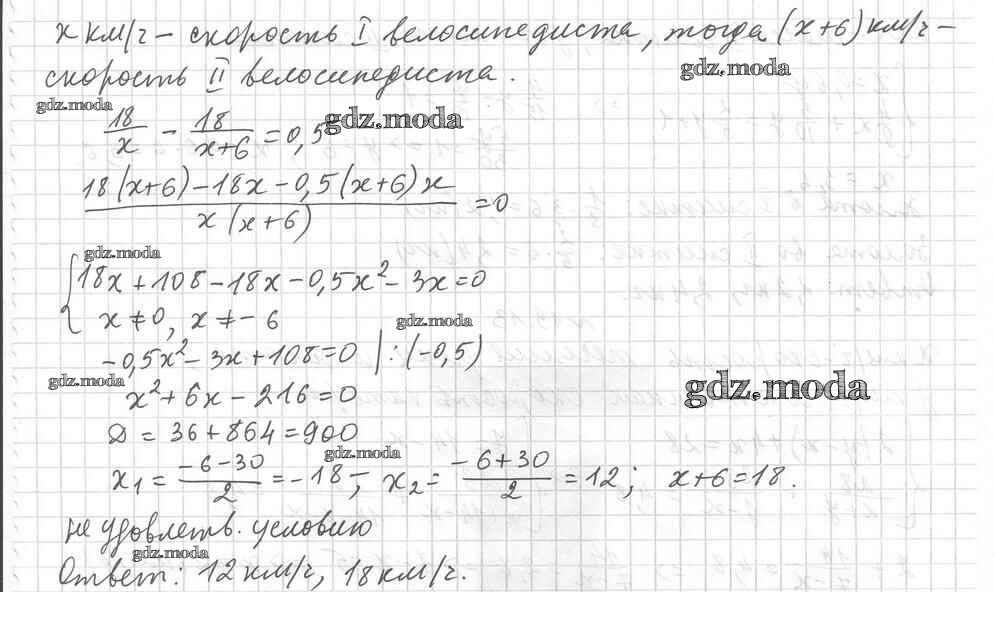 x км/ч – скорость I велосипедиста, тогда (x+6) км/ч –
gdz.moda
скорость II велосипедиста.
gdz.moda
18/x - 18/(x+6) = 0,5
gdz.moda
(18(x+6) - 18x - 0,5(x+6)x)/(x(x+6)) = 0
gdz.moda
{ 18x + 108 - 18x - 0,5x² - 3x = 0
x ≠ 0, x ≠ -6
gdz.moda
-0,5x² - 3x + 108 = 0 | : (-0,5)
gdz.moda
x² + 6x - 216 = 0
gdz.moda
D = 36 + 864 = 900
gdz.moda
x₁ = (-6-30)/2 = -18 –; x₂ = (-6+30)/2 = 12; x+6 = 18.
не удовлетв. условию
gdz.moda
Ответ: 12 км/ч, 18 км/ч.